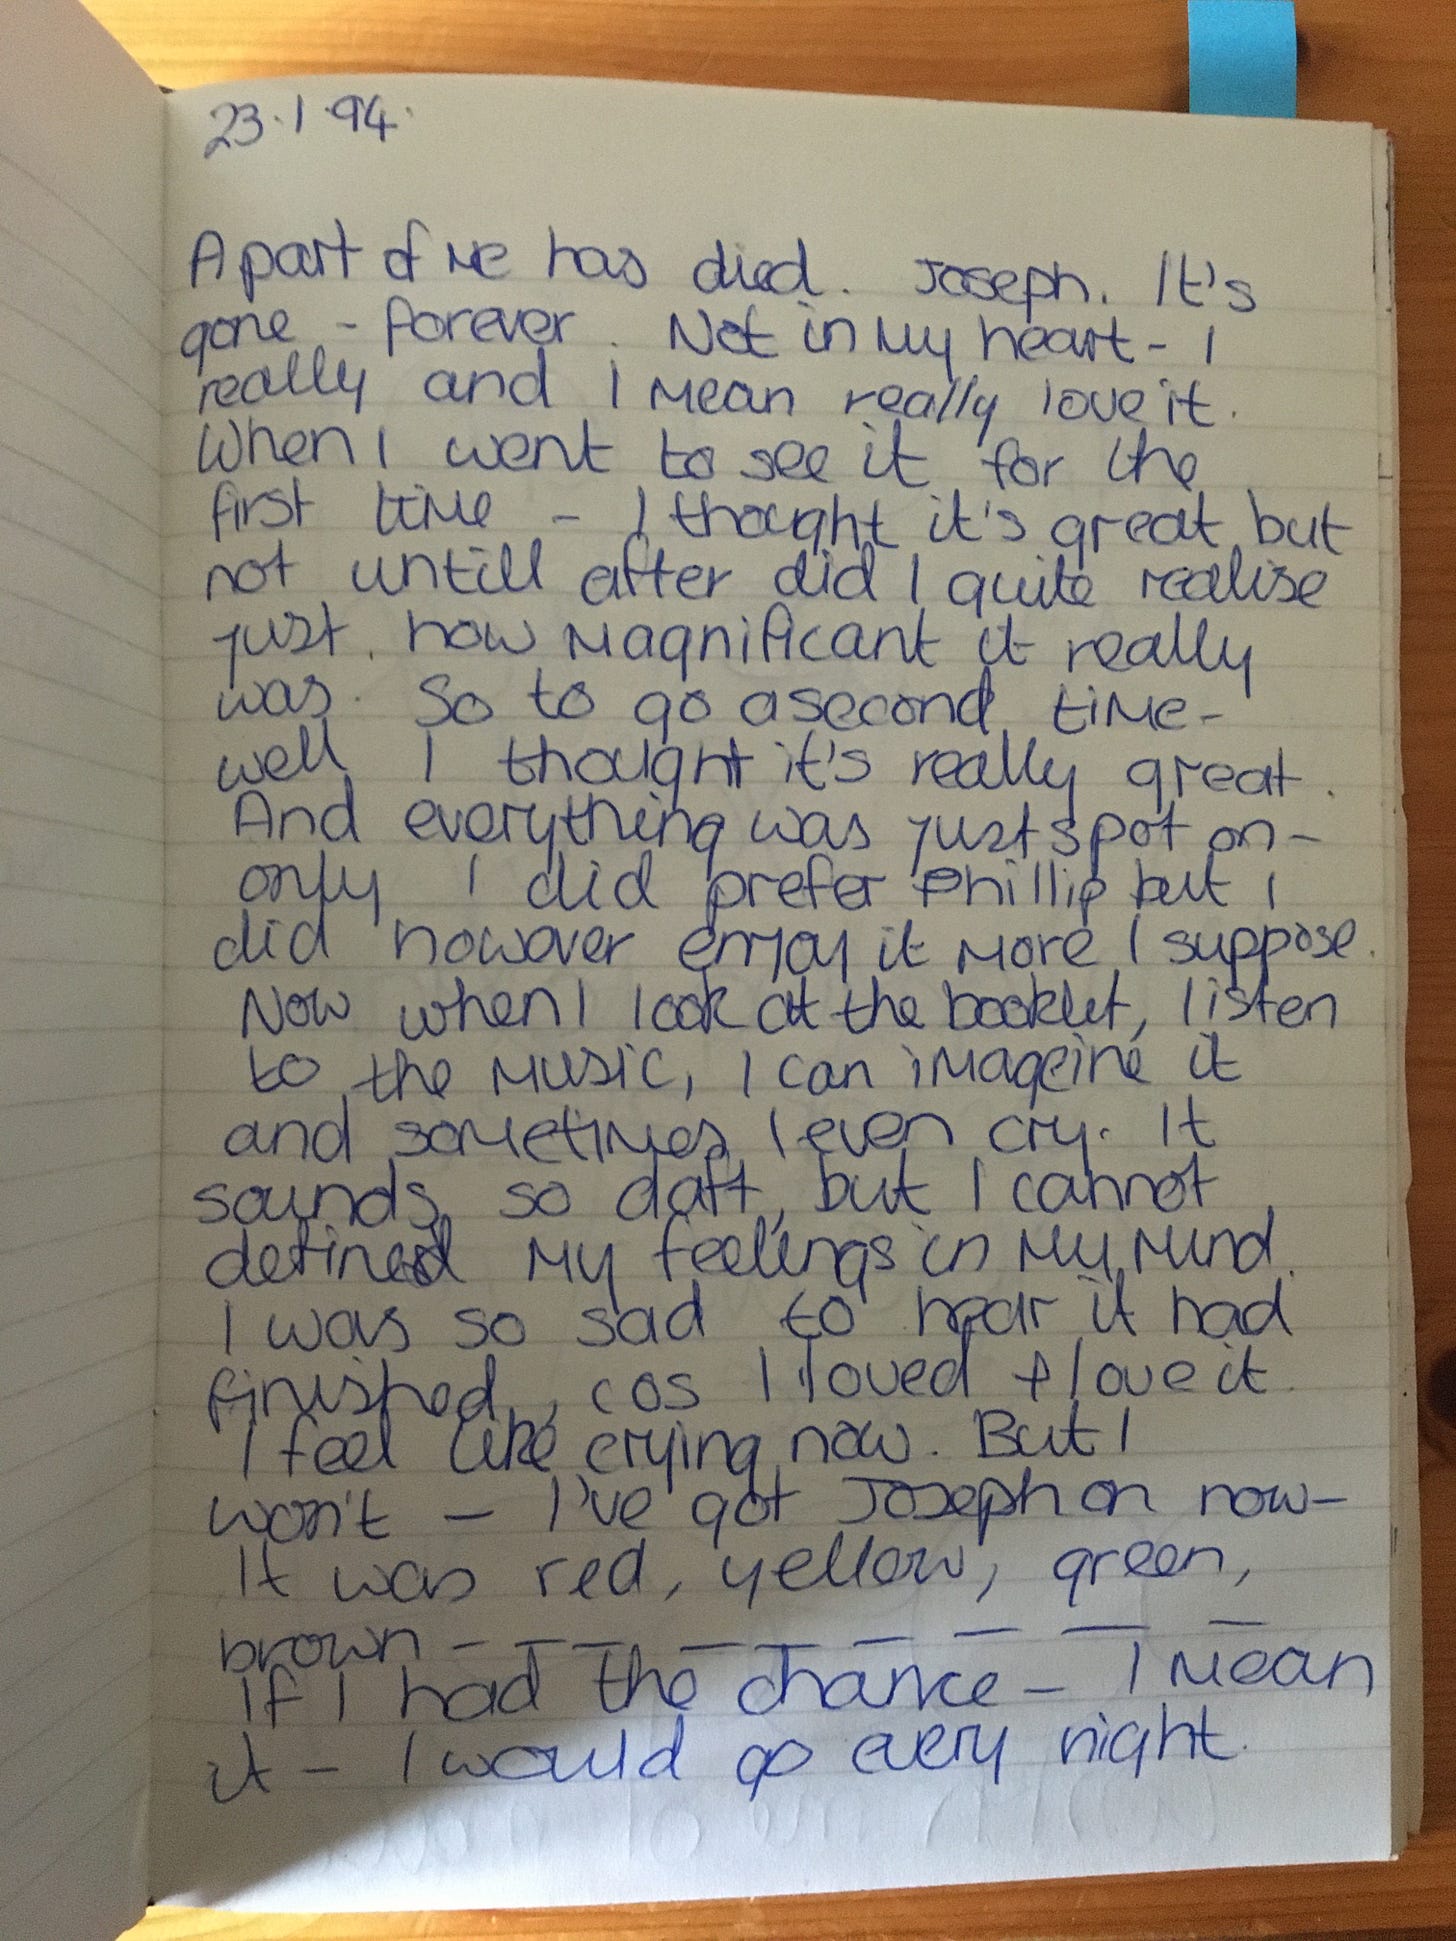 23.1.94.
A part of me has died. Joseph. It's
gone - forever. Not in my heart - I
really and I mean really love it.
When I went to see it for the
first time - I thought it's great but
not untill after did I quite realise
just how magnificant it really
was. So to go a second time -
well I thought it's really great.
And everything was just spot on -
only I did prefer Phillip but I
did however enjoy it more I suppose.
Now when I look at the booklet, listen
to the music, I can imageine it
and sometimes I even cry. It
sounds so daft, but I cannot
defined my feelings in my mind.
I was so sad to hear it had
finished, cos I loved + love it.
I feel like crying now. But I
won't - I've got Joseph on now -
It was red, yellow, green,
brown - - - - - - - - -
If I had the chance - I mean
it - I would go every night.